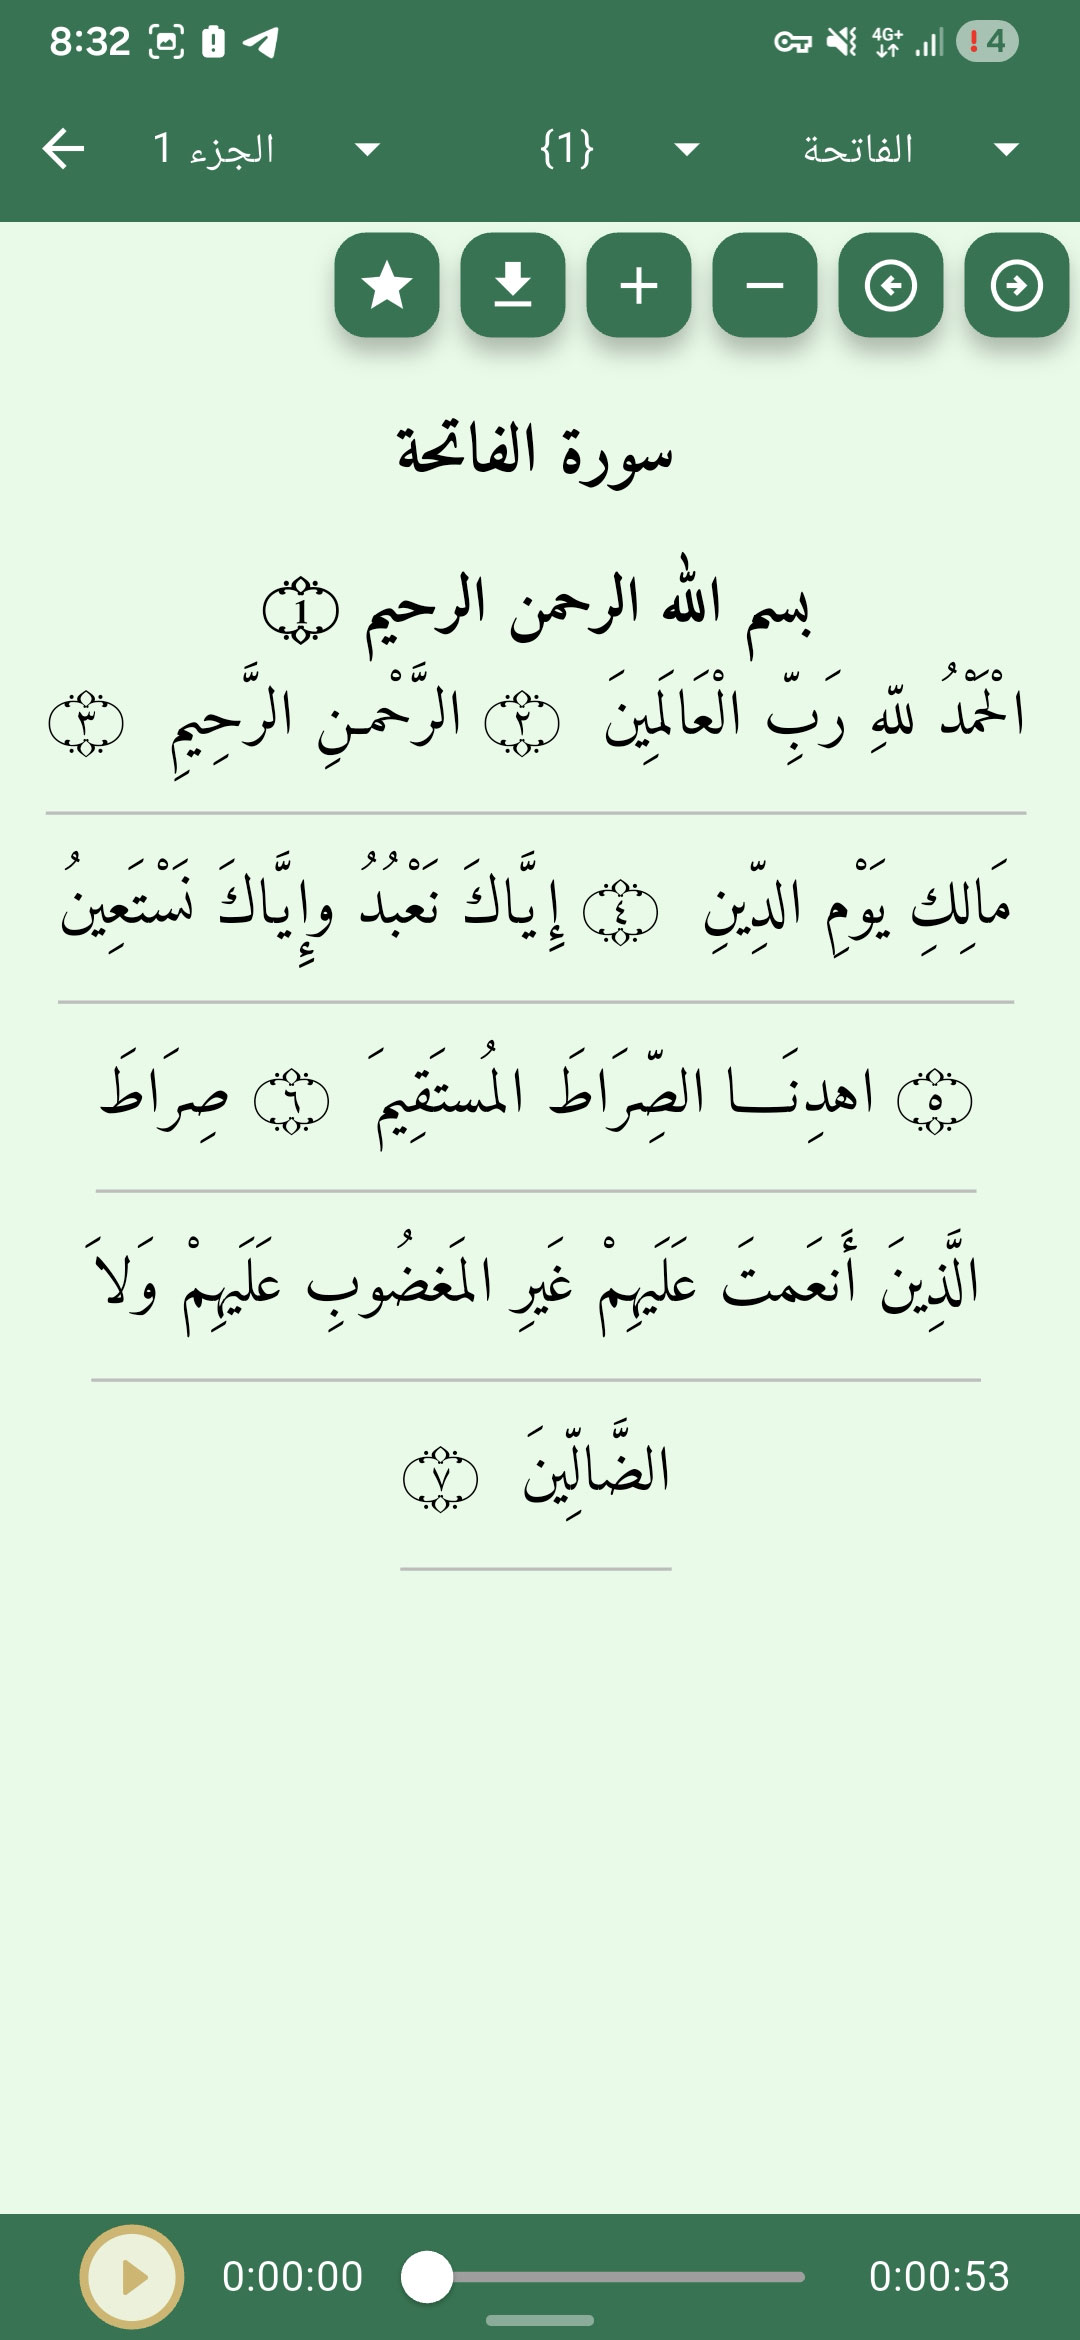 8:32 4G+ 4
الجزء 1 {1} الفاتحة
سورة الفاتحة
بسم الله الرحمن الرحيم ﴿1﴾
الْحَمْدُ للّهِ رَبِّ الْعَالَمِينَ ﴿٢﴾ الرَّحْمـنِ الرَّحِيمِ ﴿٣﴾
مَالِكِ يَوْمِ الدِّينِ ﴿٤﴾ إِيَّاكَ نَعْبُدُ وإِيَّاكَ نَسْتَعِينُ
﴿٥﴾ اهدِنَــــا الصِّرَاطَ المُستَقِيمَ ﴿٦﴾ صِرَاطَ
الَّذِينَ أَنعَمتَ عَلَيهِمْ غَيرِ المَغضُوبِ عَلَيهِمْ وَلاَ
الضَّالِّينَ ﴿٧﴾
0:00:00 0:00:53